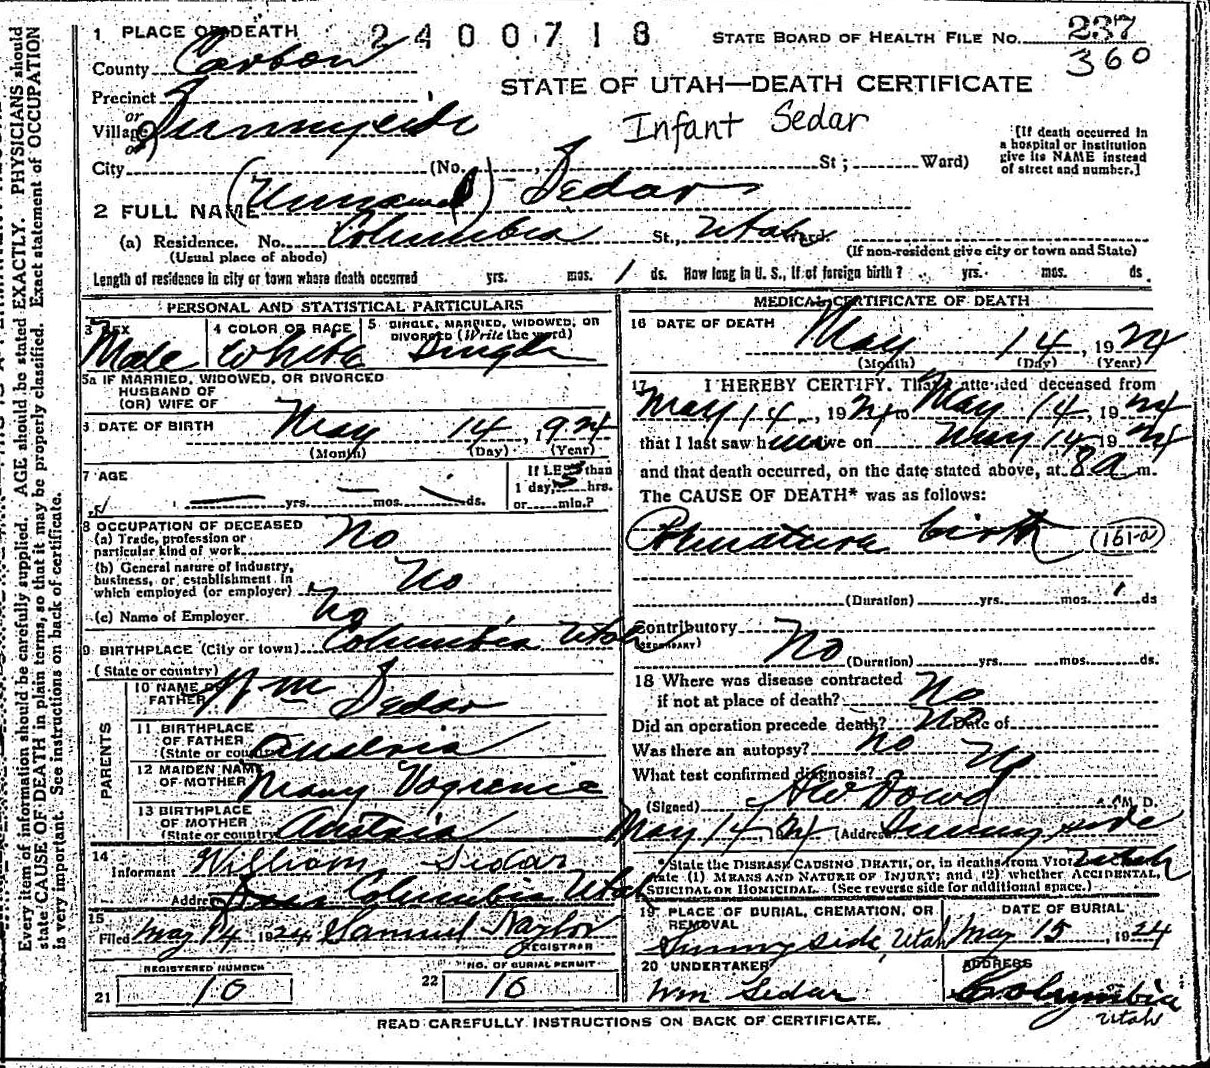 1 PLACE OF DEATH 2400718 STATE BOARD OF HEALTH FILE No. 237
360
County Carbon
STATE OF UTAH—DEATH CERTIFICATE
Precinct
or
Village Sunnyside
or
Infant Sedar
[If death occurred in a hospital or institution give its NAME instead of street and number.]
City (No. St; Ward)
2 FULL NAME (Unnamed) Sedar
(a) Residence. No. Columbia St., Utah Ward.
(Usual place of abode) (If non-resident give city or town and State)
Length of residence in city or town where death occurred yrs. mos. 1 ds. How long in U. S., if of foreign birth? yrs. mos. ds.
PERSONAL AND STATISTICAL PARTICULARS
3 SEX 4 COLOR OR RACE 5 SINGLE, MARRIED, WIDOWED, OR DIVORCED (Write the word)
Male White Single
5a IF MARRIED, WIDOWED, OR DIVORCED
HUSBAND OF
(OR) WIFE OF
6 DATE OF BIRTH May 14, 1924
(Month) (Day) (Year)
7 AGE If LESS than
1 day, hrs.
yrs. mos. ds. or min.?
8 OCCUPATION OF DECEASED
(a) Trade, profession or
particular kind of work No
(b) General nature of industry,
business, or establishment in
which employed (or employer) No
(c) Name of Employer No
9 BIRTHPLACE (City or town) Columbia Utah
(State or country)
PARENTS
10 NAME OF
FATHER Wm Sedar
11 BIRTHPLACE
OF FATHER
(State or country) Austria
12 MAIDEN NAME
OF MOTHER Mary
13 BIRTHPLACE
OF MOTHER
(State or country) Austria
14
Informant William Sedar
Address Columbia Utah
15
Filed May 14 1924 Samuel Naylor
REGISTRAR
REGISTERED NUMBER NO. OF BURIAL PERMIT
21 10 22 10
MEDICAL CERTIFICATE OF DEATH
16 DATE OF DEATH
May 14, 1924
(Month) (Day) (Year)
17 I HEREBY CERTIFY. That I attended deceased from
May 14, 1924 to May 14, 1924
that I last saw him alive on May 14 1924
and that death occurred, on the date stated above, at 8 a m.
The CAUSE OF DEATH* was as follows:
Premature birth (161-a)
(Duration) yrs. mos. 1 ds
Contributory No
(SECONDARY)
(Duration) yrs. mos. ds.
18 Where was disease contracted
if not at place of death? No
Did an operation precede death? No Date of
Was there an autopsy? No
What test confirmed diagnosis? No
(Signed) Dowd M. D.
May 14 1924 (Address) Sunnyside
Utah
*State the DISEASE CAUSING DEATH, or, in deaths from VIOLENT
state (1) MEANS AND NATURE OF INJURY; and (2) whether ACCIDENTAL,
SUICIDAL OR HOMICIDAL. (See reverse side for additional space.)
19 PLACE OF BURIAL, CREMATION, OR REMOVAL DATE OF BURIAL
Sunnyside, Utah May 15, 1924
20 UNDERTAKER ADDRESS
Wm Sedar Columbia
Utah
READ CAREFULLY INSTRUCTIONS ON BACK OF CERTIFICATE.
Every item of information should be carefully supplied. AGE should be stated EXACTLY. PHYSICIANS should
state CAUSE OF DEATH in plain terms, so that it may be properly classified. Exact statement of OCCUPATION
is very important. See instructions on back of certificate.